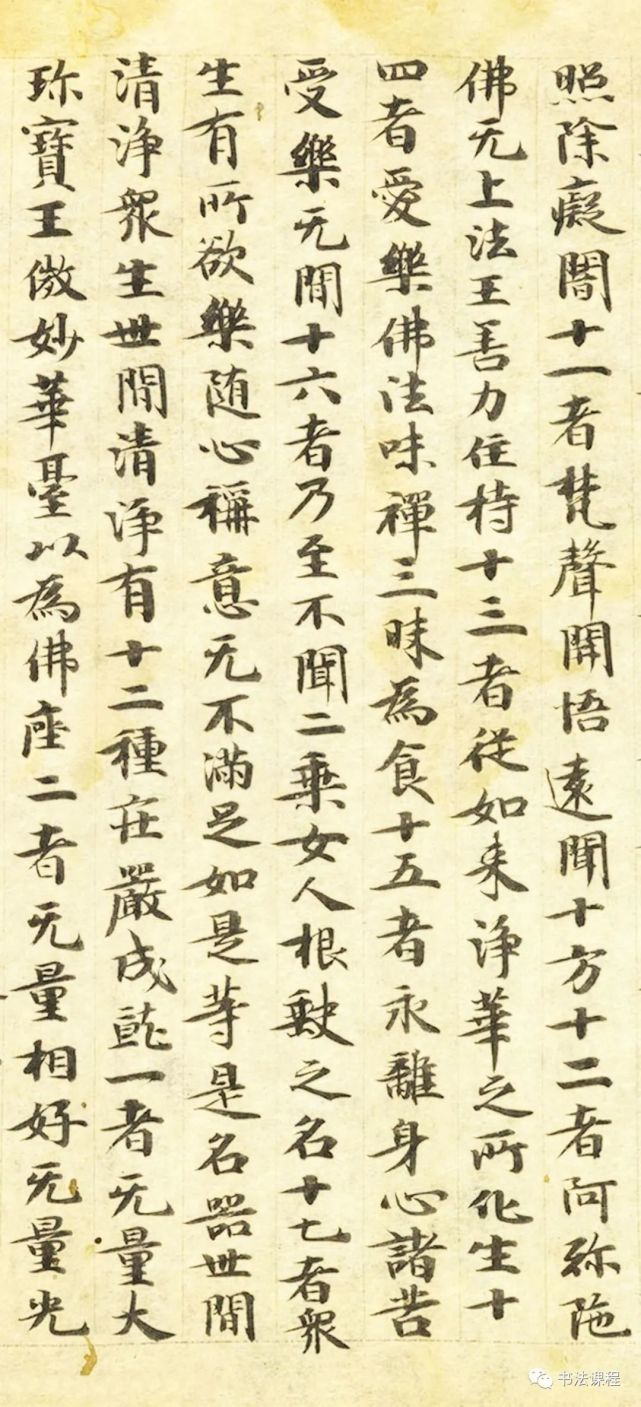 照除癡闇十一者梵聲開悟遠聞十方十二者阿弥陁
佛无上法王善力住持十三者從如来淨華之所化生十
四者愛樂佛法味禪三昧為食十五者永離身心諸苦
受樂无間十六者乃至不聞二乘女人根缺之名十七者衆
生有所欲樂随心稱意无不滿足如是等是名器世間
清淨衆生世間清淨有十二種莊嚴成就一者无量大
珎寶王微妙華臺以為佛座二者无量相好无量光
书法课程